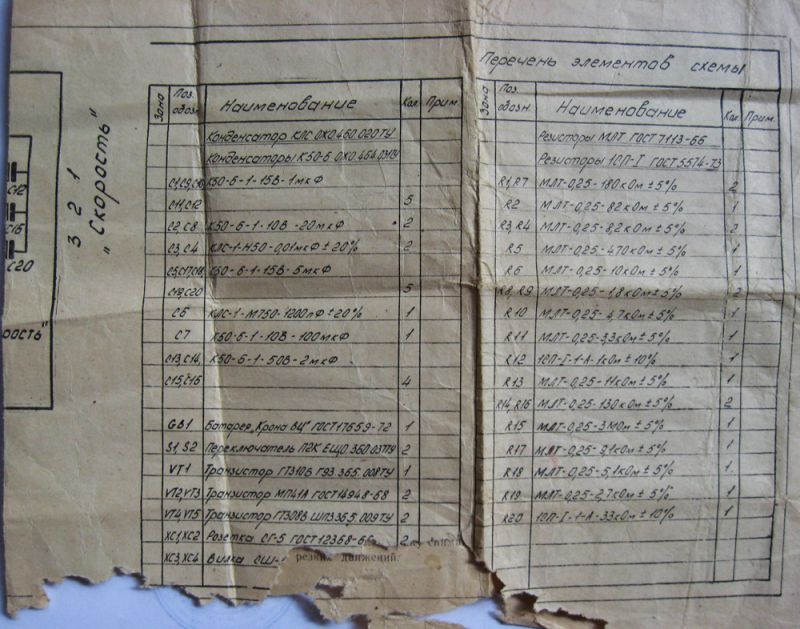 Перечень элементов схемы
Зона Поз. обозн. Наименование Кол. Прим.
Конденсатор КЛС ОЖО.460.020ТУ
Конденсаторы К50-6 ОЖО.464.031ТУ
С1,С9,С10 К50-6-1-15В-1мкФ
С11,С12 5
С2,С8 К50-6-1-10В-20мкФ 2
С3,С4 КЛС-1-Н50-0,01мкФ±20% 2
К50-6-1-15В-5мкФ
С20 5
С6 КЛС-1-М750-1200пФ±20% 1
С7 К50-6-1-10В-100мкФ 1
С13,С14, К50-6-1-50В-2мкФ
С15,С16 4
GB1 Батарея "Крона ВЦ" ГОСТ17659-72 1
S1,S2 Переключатель П2К ЕЩО.360.037ТУ 2
VT1 Транзистор ГТ310Б 365.008ТУ 1
VT2,VT3 Транзистор МП41А ГОСТ14948-68 2
VT4,VT5 Транзистор ГТ308Б 365.009ТУ 2
XC1,XC2 Розетка СГ-5 ГОСТ12368-66 2
XC3,XC4 Вилка СШ-
резких движений.
Зона Поз. обозн. Наименование Кол. Прим.
Резисторы МЛТ ГОСТ 7113-66
Резисторы 1СП-I ГОСТ 5574-73
R1,R7 МЛТ-0,25-180кОм±5% 2
R2 МЛТ-0,25-82кОм±5% 1
R3,R4 МЛТ-0,25-8,2кОм±5% 2
R5 МЛТ-0,25-470кОм±5% 1
R6 МЛТ-0,25-10кОм±5% 1
R8,R9 МЛТ-0,25-1,8кОм±5% 2
R10 МЛТ-0,25-4,7кОм±5% 1
R11 МЛТ-0,25-3,3кОм±5% 1
R12 1СП-I-1-А-1кОм±10% 1
R13 МЛТ-0,25-11кОм±5% 1
R14,R16 МЛТ-0,25-130кОм±5% 2
R15 МЛТ-0,25-3МОм±5% 1
R17 МЛТ-0,25-9,1кОм±5% 1
R18 МЛТ-0,25-5,1кОм±5% 1
R19 МЛТ-0,25-2,7кОм±5% 1
R20 1СП-I-1-А-33кОм±10% 1
С12
С16
С20
рость"
3 2 1
"Скорость"